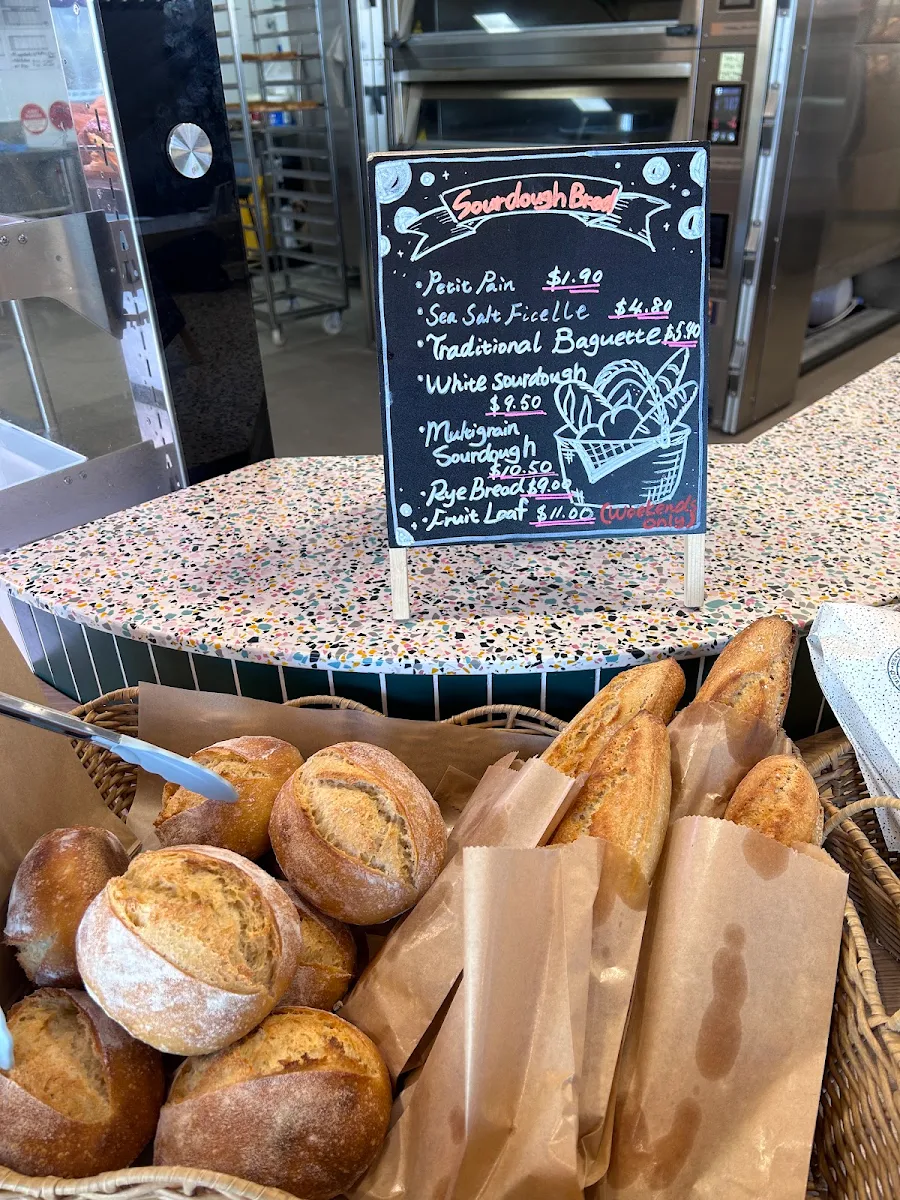 Sourdough Bread
• Petit Pain $1.90
• Sea Salt Ficelle $4.80
• Traditional Baguette $5.40
• White sourdough
$9.50
• Multigrain
Sourdough
$10.50
• Rye Bread $9.00
• Fruit Loaf $11.00 (Weekends
only)